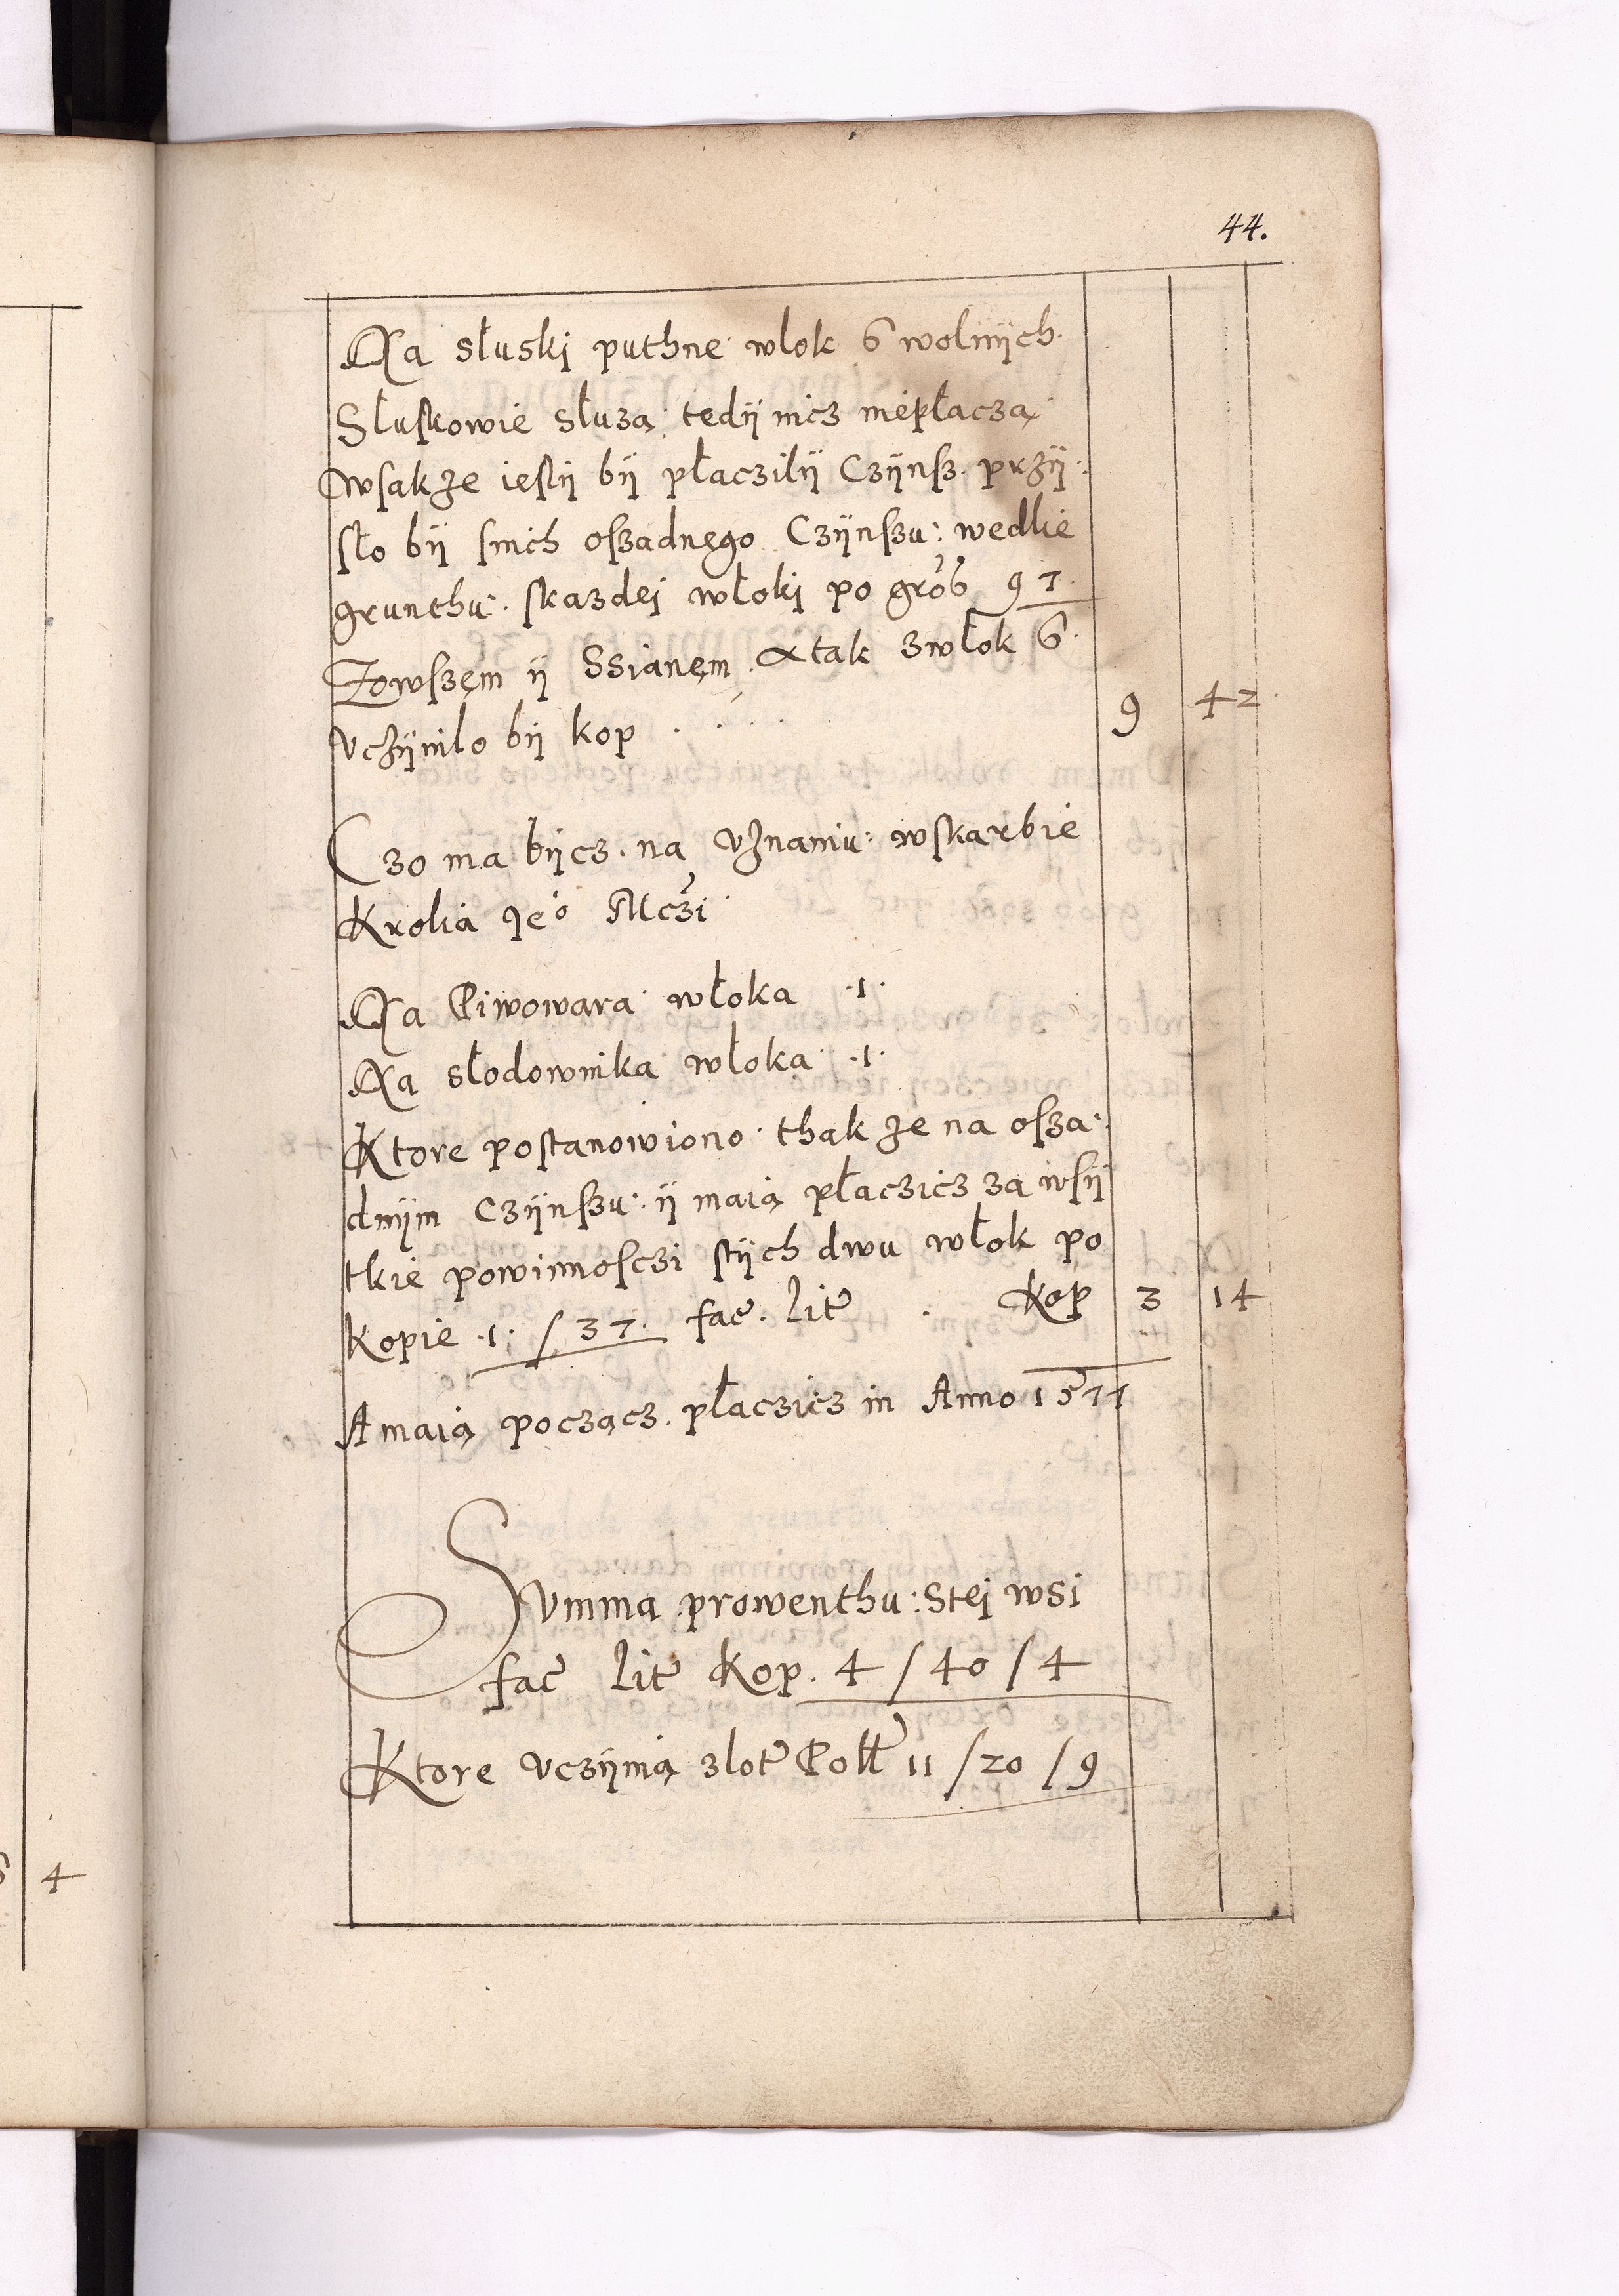 44.
Na słuski puthne włok 6 wolnÿch
Słuskowie służą: tedÿ nicz niepłaczą
Wsakże iestÿ bÿ płaczilÿ Czÿnsz. przÿ:
sło bÿ snich oszadnego Czÿnszu: wedlie
grunthu: skazdej włoki po groß 97.
Zowszem ÿ Ssianem. A tak zwłok 6.
vczÿniło bÿ kop . . . . 9 42
Czo ma bÿcz. na vznaniu: wskarbie
Krolia Jeo Mczi
Na Piwowara włoka .1.
Na słodownika włoka .1.
Ktore postanowiono thak że na osza:
dnÿm Czÿnszu: ÿ maią płaczicz za wsÿ
tkie powinnosczi stÿch dwu włok po
kopie .1. / 37. fac. lit . Kop 3 14
A maią począć. płaczicz in Anno 1577
Summa prowenthu: Stej wsi
fac lit Kop. 4 / 40 / 4
Ktore vczÿnią złot Poll 11 / 20 / 9
4